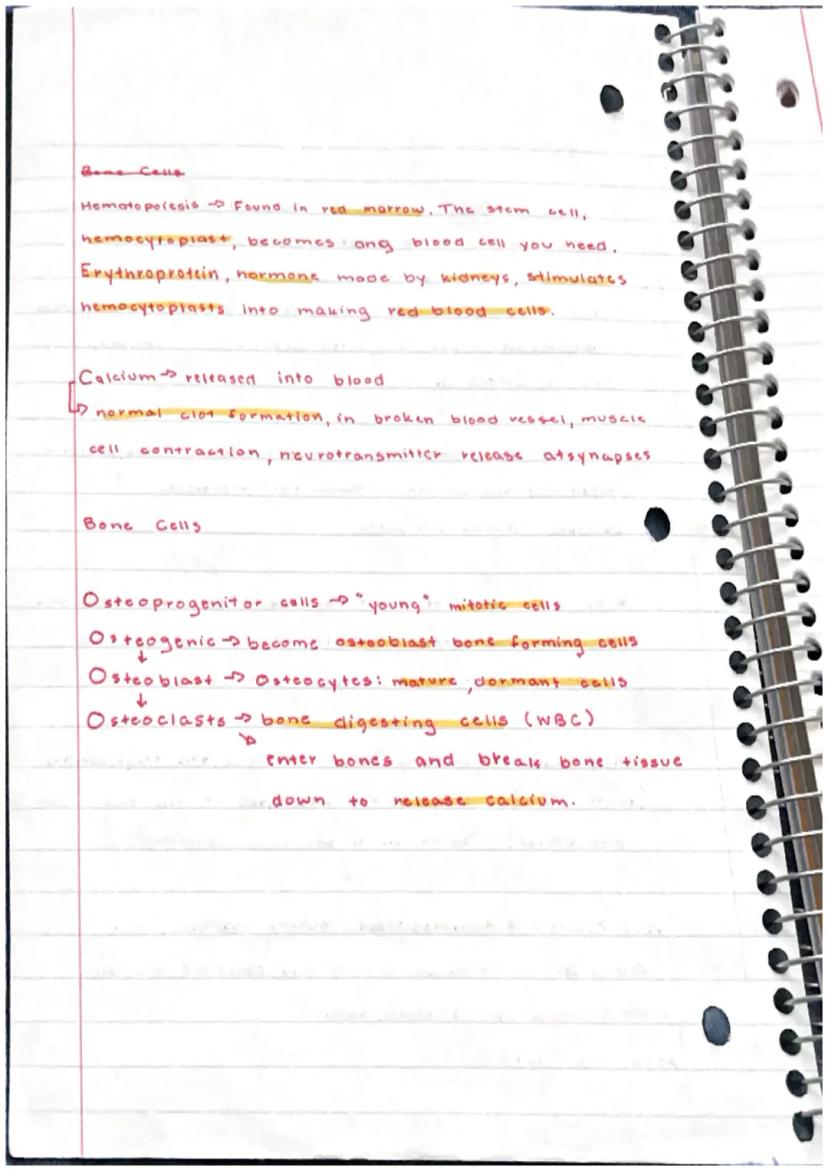 Bone Cells
Hematopoiesis → Found in red marrow. The stem cell,
hemocytoplast, becomes ang blood cell you need.
Erythroprotein, hormone made by kidneys, stimulates
hemocytoplasts into making red blood cells.
Calcium → released into blood
→ normal clot formation, in broken blood vessel, muscle
cell contraction, neurotransmitter release at synapses
Bone Cells
Osteoprogenitor cells → "young" mitotic cells
Osteogenic → become osteoblast bone forming cells
↓
Osteoblast → Osteocytes: mature, dormant cells
↓
Osteoclasts → bone digesting cells (WBC)
↘ enter bones and break bone tissue
down to release calcium.